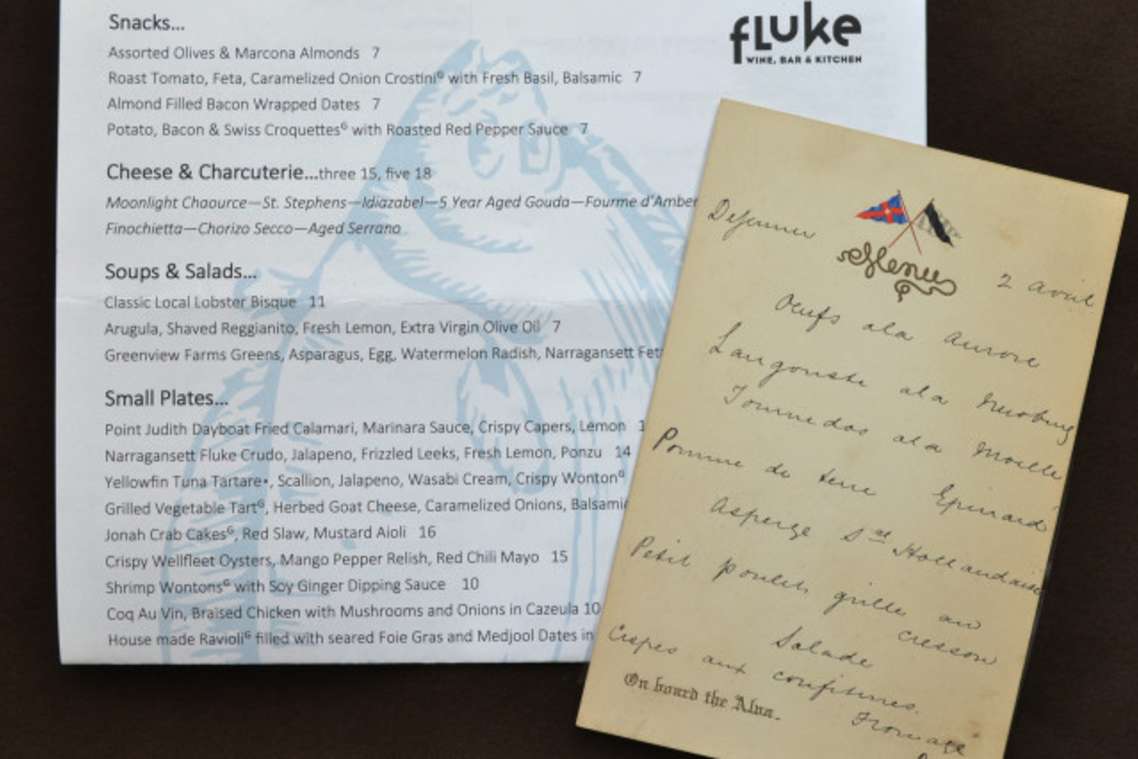 fluke
WINE, BAR & KITCHEN
Snacks...
Assorted Olives & Marcona Almonds 7
Roast Tomato, Feta, Caramelized Onion Crostiniᴳ with Fresh Basil, Balsamic 7
Almond Filled Bacon Wrapped Dates 7
Potato, Bacon & Swiss Croquettesᴳ with Roasted Red Pepper Sauce 7
Cheese & Charcuterie...three 15, five 18
Moonlight Chaource—St. Stephens—Idiazabel—5 Year Aged Gouda—Fourme d'Amber
Finochietta—Chorizo Secco—Aged Serrano
Soups & Salads...
Classic Local Lobster Bisque 11
Arugula, Shaved Reggianito, Fresh Lemon, Extra Virgin Olive Oil 7
Greenview Farms Greens, Asparagus, Egg, Watermelon Radish, Narragansett Fet
Small Plates...
Point Judith Dayboat Fried Calamari, Marinara Sauce, Crispy Capers, Lemon 1
Narragansett Fluke Crudo, Jalapeno, Frizzled Leeks, Fresh Lemon, Ponzu 14
Yellowfin Tuna Tartare•, Scallion, Jalapeno, Wasabi Cream, Crispy Wontonᴳ
Grilled Vegetable Tartᴳ, Herbed Goat Cheese, Caramelized Onions, Balsamic
Jonah Crab Cakesᴳ, Red Slaw, Mustard Aioli 16
Crispy Wellfleet Oysters, Mango Pepper Relish, Red Chili Mayo 15
Shrimp Wontonsᴳ with Soy Ginger Dipping Sauce 10
Coq Au Vin, Braised Chicken with Mushrooms and Onions in Cazeula 10
House made Ravioliᴳ filled with seared Foie Gras and Medjool Dates in
Menu
Dejeuner 2 avril
Oeufs a la aurore
Langouste a la Newburg
Tournedos a la Moelle
Pomme de terre Epinard
Asperge Sce Hollandaise
Petit poulet grille au
cresson
Salade
Crepes aux confitures.
Fromage
On board the Alva.